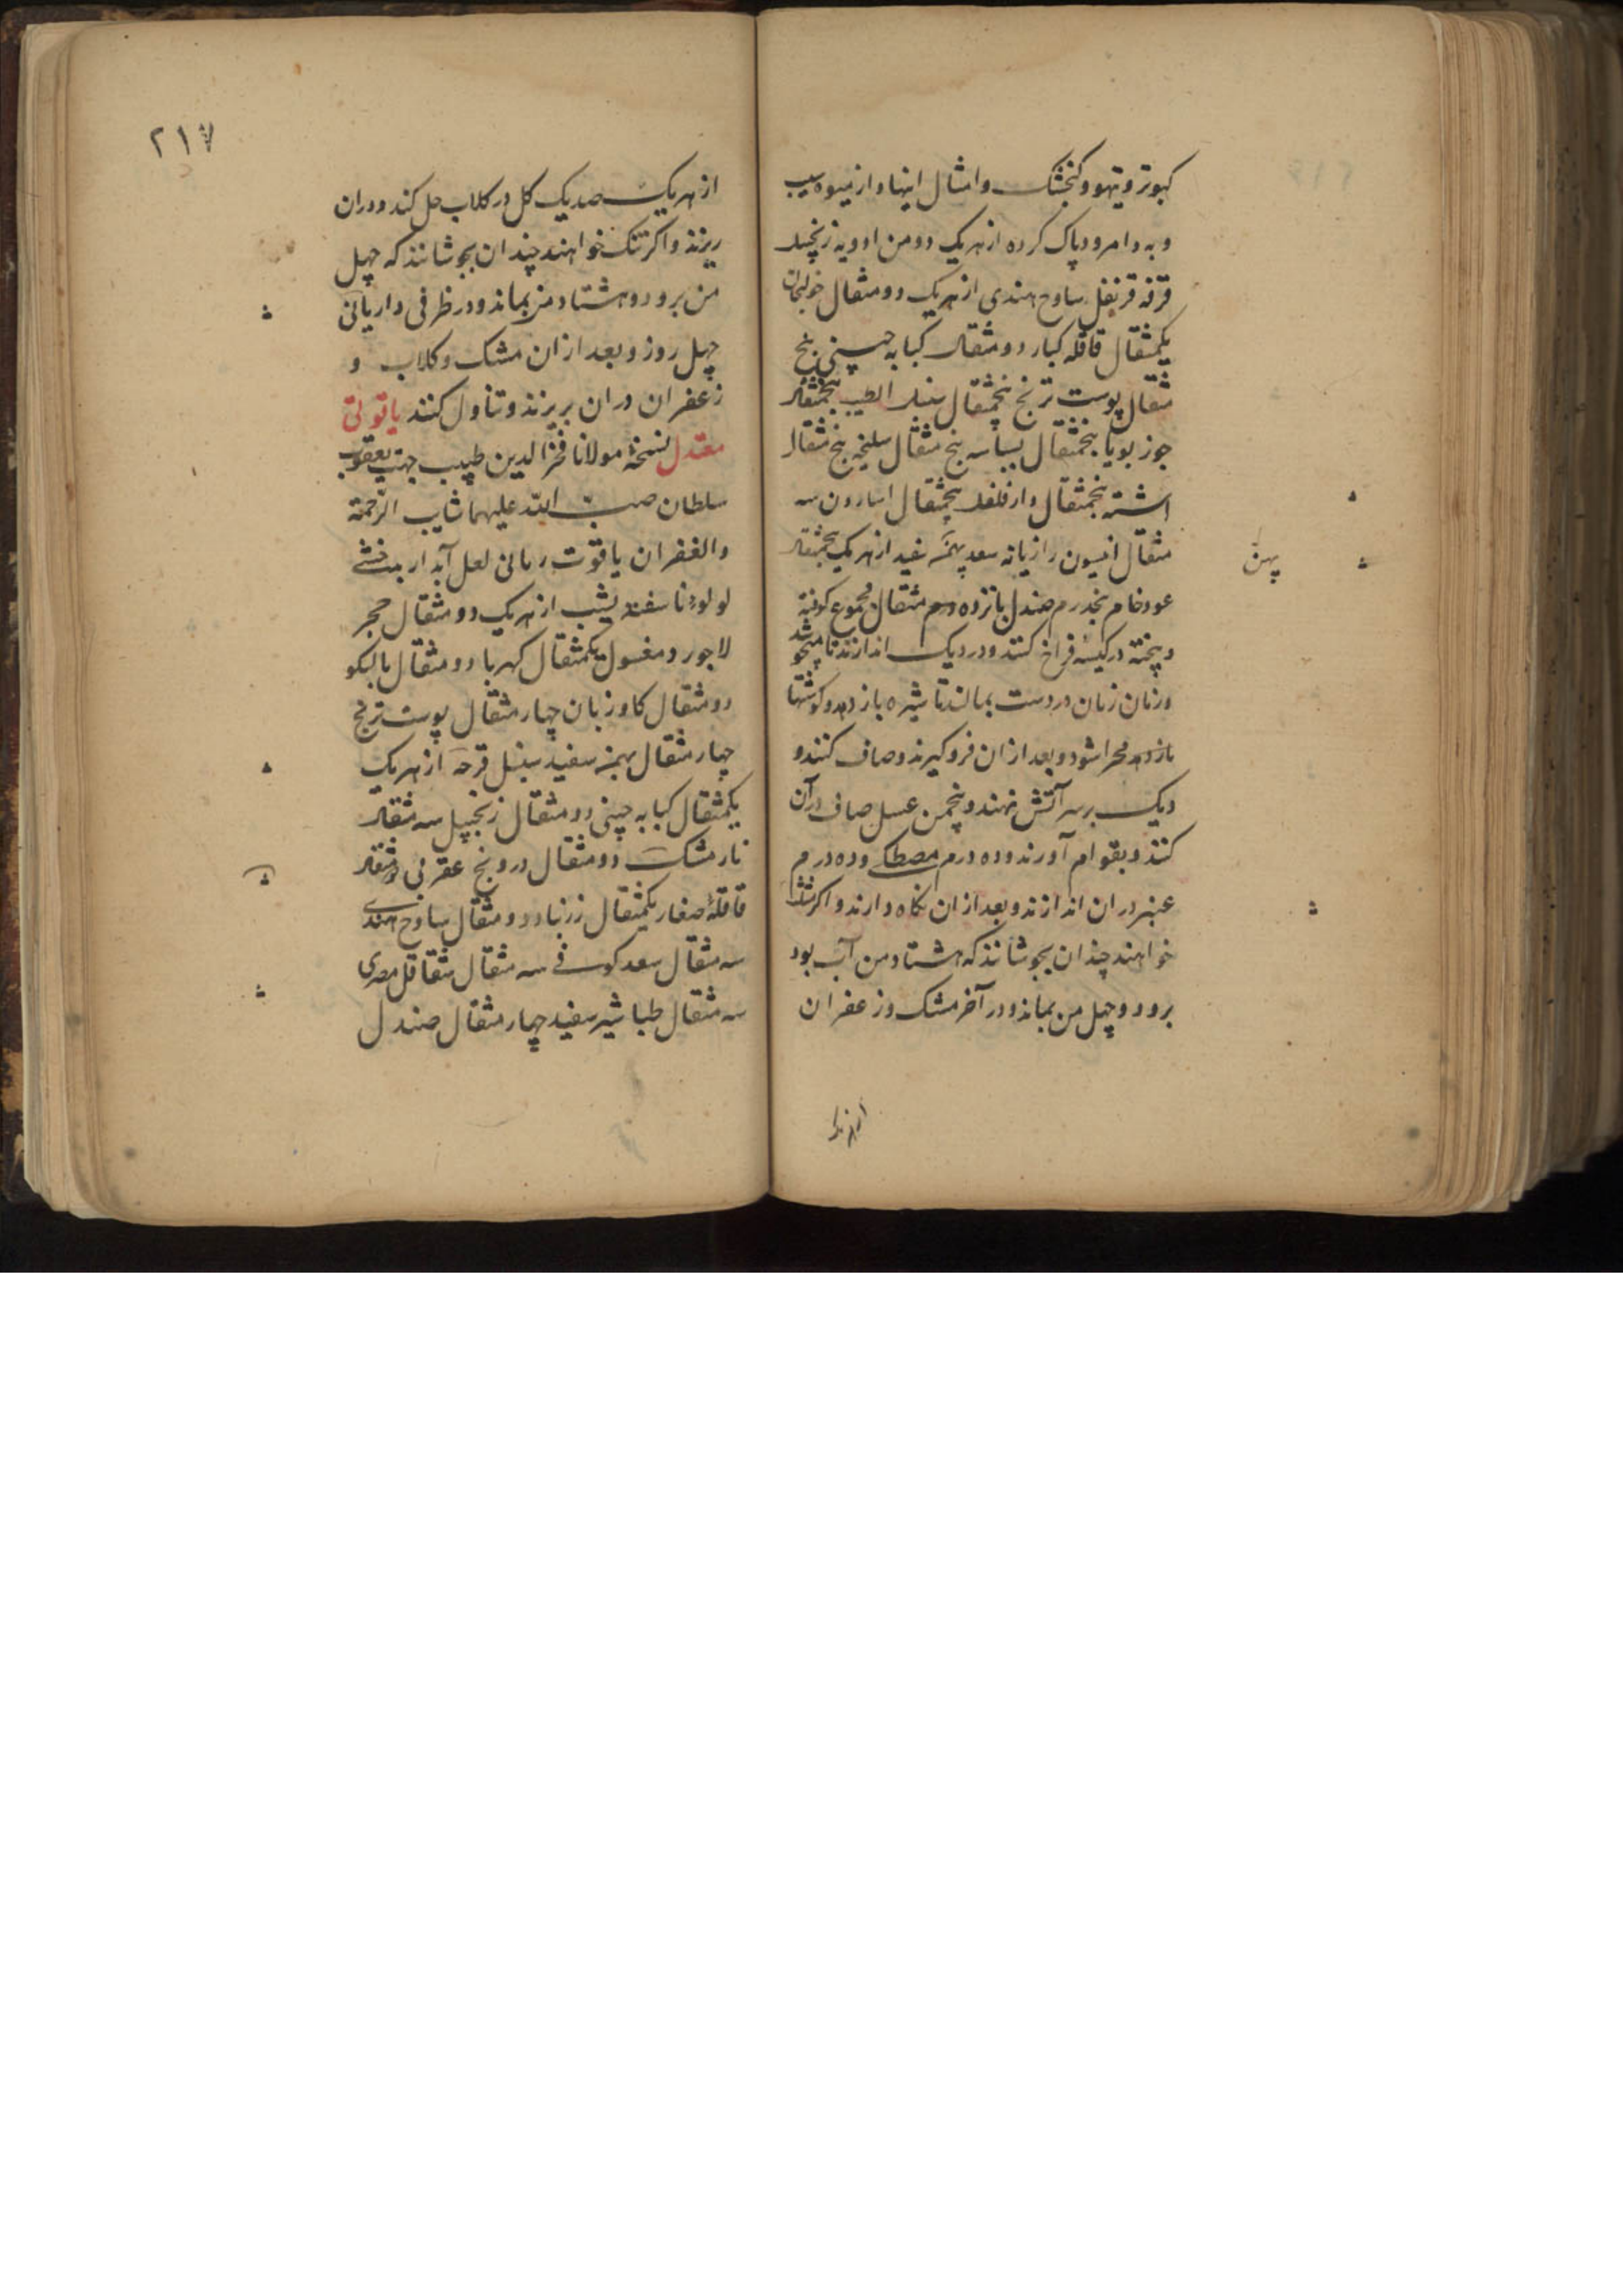 کبوتر و تیهو و کنجشک و امثال اینها و از میوه سیب
و به و امرود پاک کرده از هر یک دو من ادویه زنجبیل
قرفه قرنفل ساذج هندی از هر یک دو مثقال خولنجان
یکمثقال قاقله کبار دو مثقال کبابه چینی پنج
مثقال پوست ترنج پنجمثقال سنبل الطیب پنجمثقال
جوز بویا پنجمثقال بسباسه پنج مثقال سلیخه پنج مثقال
اشنه پنجمثقال دار فلفل پنجمثقال اسارون سه
مثقال انیسون رازیانه سعد بهمن سفید از هر یک پنجمثقال
بهمن
عود خام پنجدرم صندل پانزده درم مثقال مجموع کوفته
و پخته در کیسه فراخ کنند و در دیک اندازند تا میجوشد
و زمان زمان در دست بمالند تا شیره باز دهد و کوشتها
باز دهد مهرا شود و بعد از آن فرو کیرند و صاف کنند و
دیک بر سر آتش نهند و پنجمن عسل صاف در آن
کنند و بقوام آورند و ده درم مصطکی و ده درم
عنبر در ان اندازند و بعد از ان نکاه دارند و اکر
خواهند چندان بجوشانند که هشتاد من آب بود
برود و چهل من بماند و در آخر مشک و زعفران
از هر یک
۲۱۷
از هر یک صد یک کل در کلاب حل کند و در ان
ریزند و اکر تنک خواهند چندان بجوشانند که چهل
من برود و هشتاد من بماند و در ظرفی دار یاتی
چهل روز و بعد از ان مشک و کلاب و
زعفران در ان بریزند و تناول کنند یاقوتی
معتدل نسخهٔ مولانا فخر الدین طبیب جهت یعقوب
سلطان صب الله علیهما شآبیب الرحمة
و الغفران یاقوت رمانی لعل آبدار بدخشی
لولوء ناسفته یشب از هر یک دو مثقال حجر
لاجورد مغسول یکمثقال کهربا دو مثقال بالنکو
دو مثقال کاو زبان چهار مثقال پوست ترنج
چهار مثقال بهمن سفید سنبل قرحه از هر یک
یکمثقال کبابه چینی دو مثقال زنجبیل سه مثقال
نارمشک دو مثقال درونج عقربی دو مثقال
قاقلهٔ صغار یکمثقال زرنباد دو مثقال ساذج هندی
سه مثقال سعد کوفی سه مثقال شقاقل مصری
سه مثقال طباشیر سفید چهار مثقال صندل